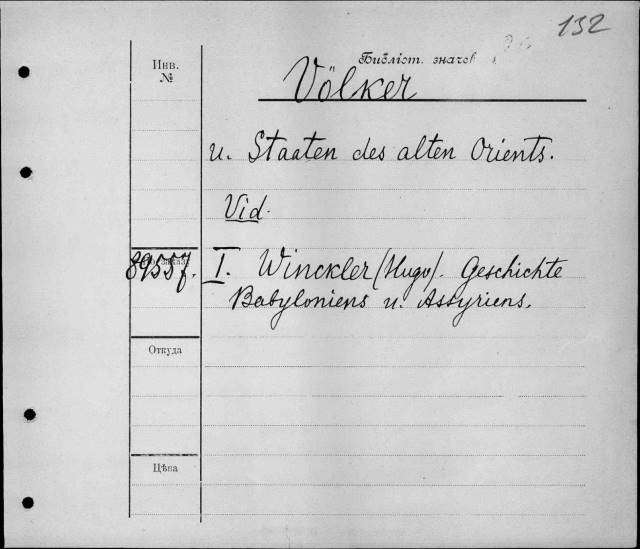 132
Инв.
№
Библіот. значек
Völker
u. Staaten des alten Orients.
Vid.
89557. I. Winckler (Hugo). Geschichte
Babyloniens u. Assyriens.
Откуда
Цѣна